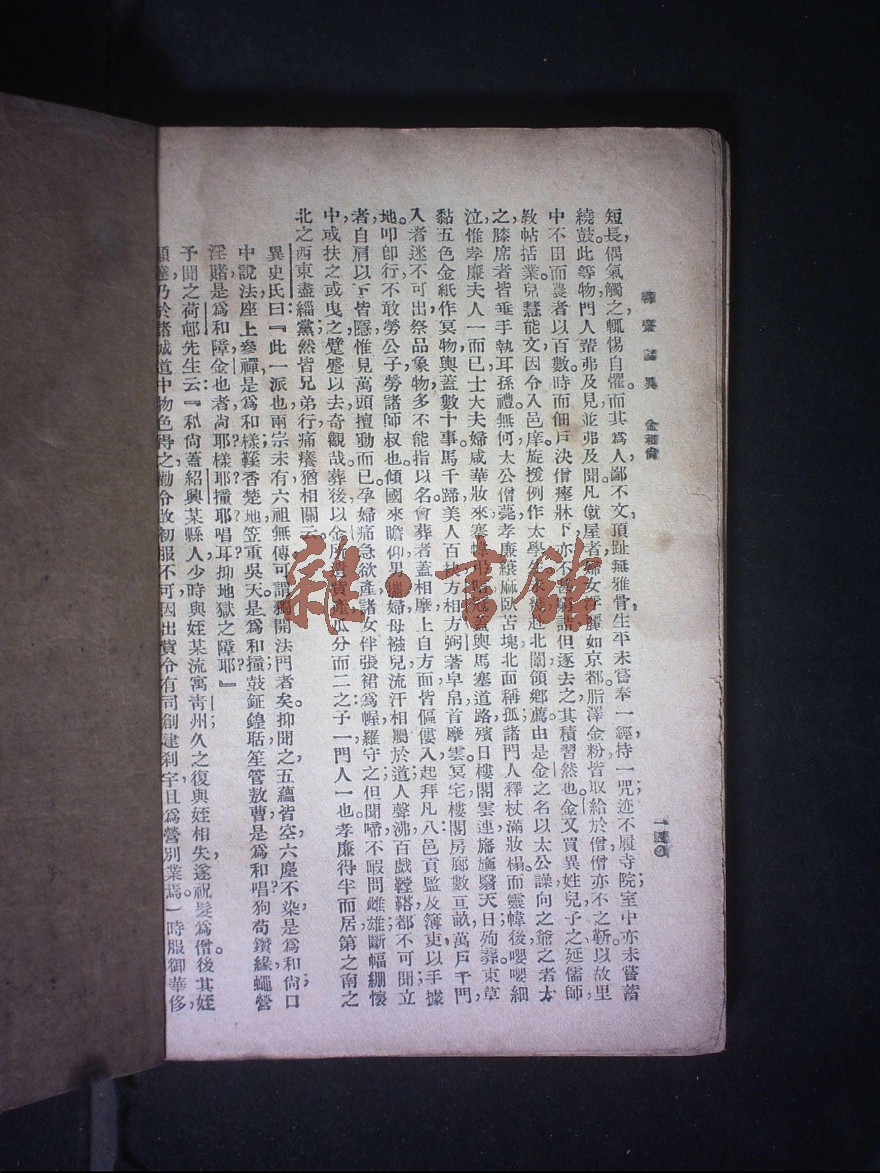 聊齋誌異 金和尙
一四〇
短長,偶氣觸之,輒惕自懼。而其爲人鄙不文,頂趾無雅骨。生平未嘗奉一經,持一咒,迹不履寺院,室中亦未嘗蓄
鐃鼓。此等物,門人輩弗及見,並弗及聞。凡僦屋者,婦女浮麗如京都,脂澤金粉,皆取給於僧,僧亦不之靳,以故里
中不田而農者以百數。時而佃戶決僧瘞牀下,亦不甚窮詰,但逐去之,其積習然也。金又買異姓兒子之,延儒師
敎帖括業。兒慧能文,因令入邑庠,旋援例作太學生,未幾赴北闈,領鄕薦。由是金之名以太公譟。向之爺之者太
之,膝席者皆垂手執耳孫禮。無何,太公僧薨,孝廉縗麻臥苫塊,北面稱孤,諸門人釋杖滿妝榻。而靈幃後嚶嚶細
泣,惟孝廉夫人一而已。士大夫婦咸華妝來,搴幃弔唁,冠蓋輿馬塞道路。殯日,樓閣雲連,旛旟翳天日。殉葬束草
黏五色金紙作冥物,輿蓋數十事,馬千蹄,美人百枝。方相方弼,著皁帛,首摩雲。冥宅樓閣房廊數亘畝,萬戶千門,
入者迷不可出。祭品象物,多不能指以名。會葬者蓋相摩,上自方面,皆傴僂入起拜凡八,邑貢監及簿吏,以手據
地,叩卽行,不敢勞公子、勞諸師叔也。傾國來瞻仰,男攜婦,母襁兒,流汗相屬於道,人聲沸,百戲鞺鞳,都不可聞。立
者自肩以下皆隱,惟見萬頭攢動而已。孕婦痛急欲產,諸女伴張裙爲幄羅守之,但聞啼,不暇問雌雄,斷幅綳懷
中,或扶之,或曳之,蹩躄以去。奇觀哉。葬後,以金所遺貲產,瓜分而二之,子一,門人一也。孝廉得半,而居第之南之
北之西東,盡緇黨,然皆兄弟行,痛癢猶相關云。
異史氏曰:『此一派也,兩宗未有,六祖無傳,可謂獨開法門者矣。抑聞之五蘊皆空,六塵不染,是爲和尙;口
中說法,座上參禪,是爲和樣;鞵香楚地,笠重吳天,是爲和撞;鼓鉦鍠聒,笙管敖曹,是爲和唱;狗苟鑽緣,蠅營
淫賭,是爲和障。金也者,尙耶?樣耶?撞耶?唱耶?抑地獄之障耶?』
予聞之荷邨先生云:『和尙蓋紹興某縣人,少時與姪某流寓靑州,久之復與姪相失,遂祝髮爲僧。後其姪
顯達,乃於諸城道中物色得之,勸令改初服,不可,因出貲令有司創建刹宇,且爲營別業焉。一時服御華侈,
雜·書館